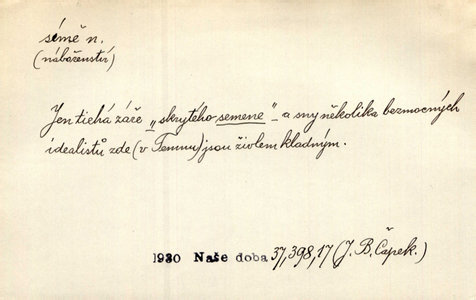 símě n.
(náboženství)
Jen tichá záře „skrytého semene" a sny několika bezmocných
idealistů zde (v Temnu) jsou živlem kladným.
1930 Naše doba 37,398,17 (J. B. Čapek.)